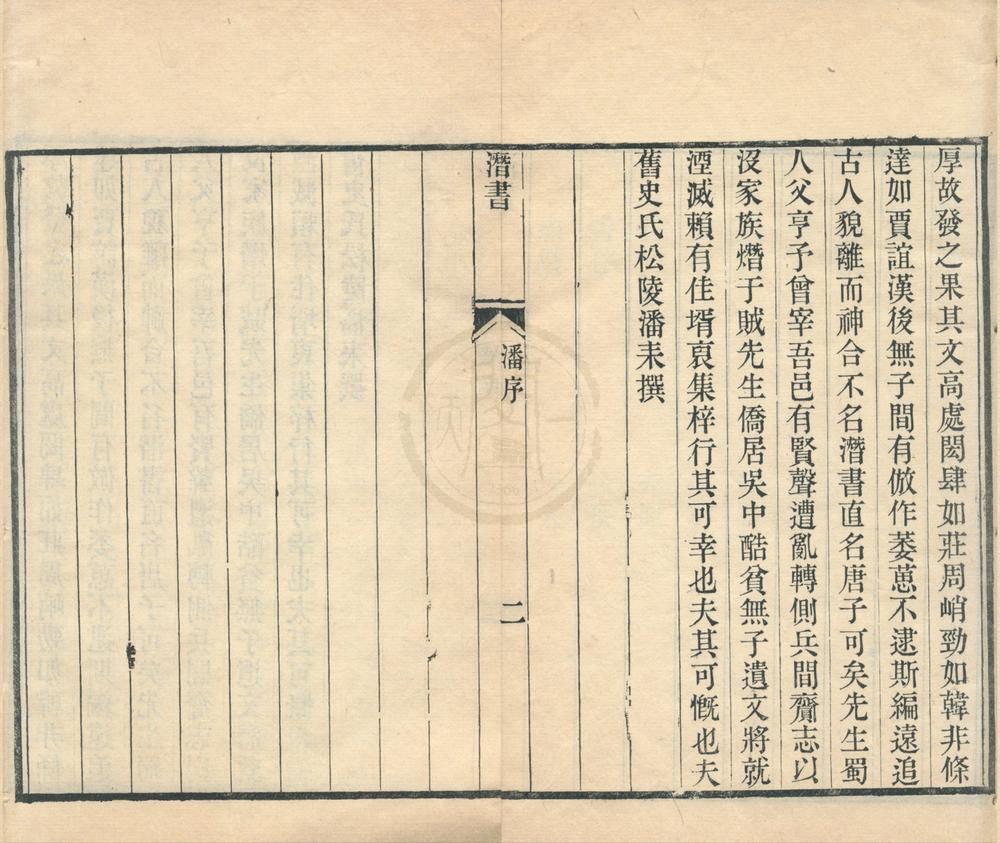 厚故發之果其文高處閎肆如莊周峭勁如韓非條
達如賈誼漢後無子間有倣作萎葸不逮斯編遠追
古人貌離而神合不名潛書直名唐子可矣先生蜀
人父亨予曾宰吾邑有賢聲遭亂轉側兵間齎志以
沒家族熸于賊先生僑居吳中酷貧無子遺文將就
湮滅賴有佳壻裒集梓行其可幸也夫其可慨也夫
舊史氏松陵潘耒撰
潛書
潘序
二